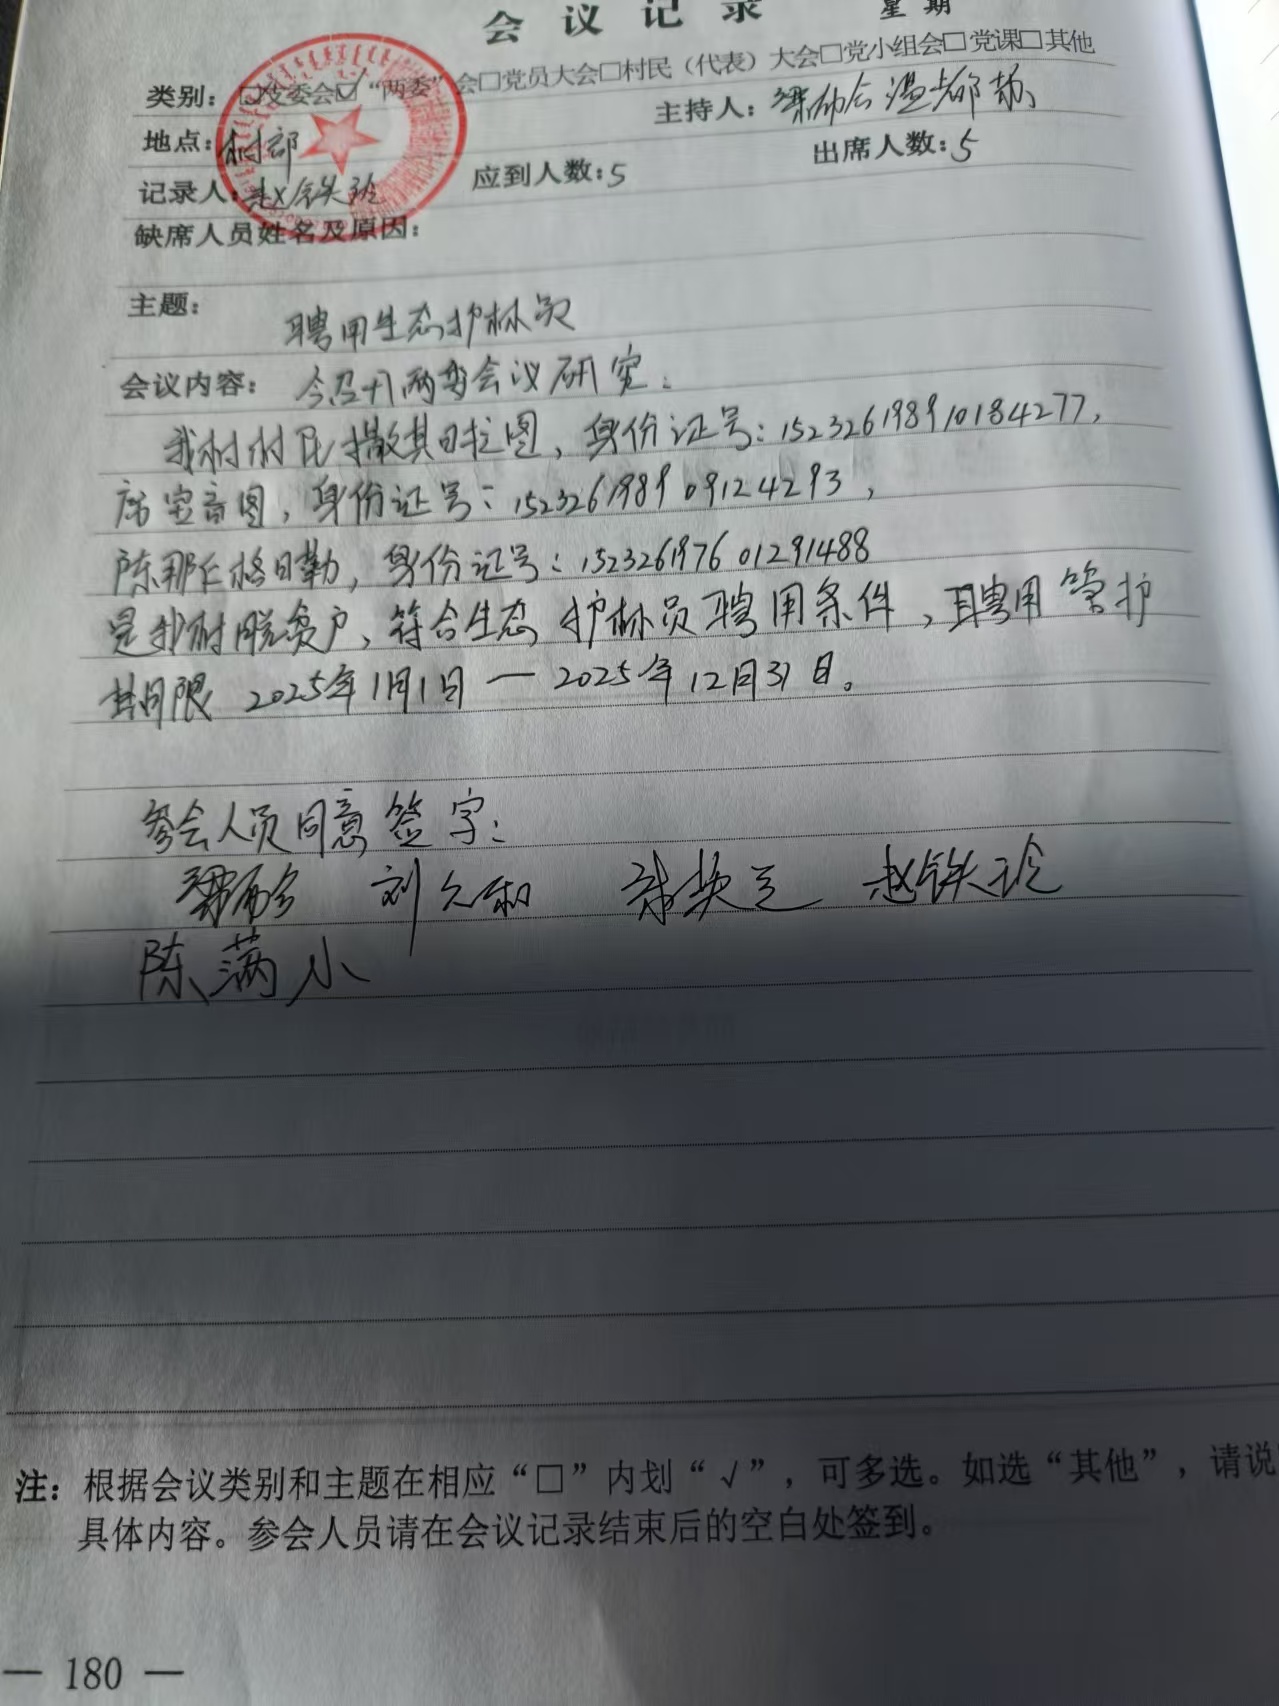 会议记录 星期
类别：□支委会☑“两委”会□党员大会□村民（代表）大会□党小组会□党课□其他
地点：村部 主持人：
记录人：赵铁玲 应到人数：5 出席人数：5
缺席人员姓名及原因：
主题：聘用生态护林员
会议内容：今召开两委会议研究：
我村村民撒其日拉图，身份证号：152326198910184277，
席宝音图，身份证号：152326198909124293，
陈那仁格日勒，身份证号：152326197601291488
是我村脱贫户，符合生态护林员聘用条件，聘用管护
期限 2025年1月1日—2025年12月31日。
参会人员同意签字：
刘久和 赵铁玲
陈满小
注：根据会议类别和主题在相应“□”内划“√”，可多选。如选“其他”，请说
具体内容。参会人员请在会议记录结束后的空白处签到。
— 180 —